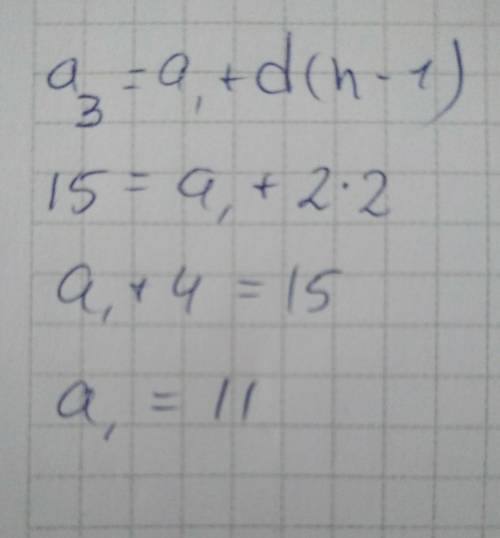 a₃ = a₁ + d(n - 1)
15 = a₁ + 2·2
a₁ + 4 = 15
a₁ = 11